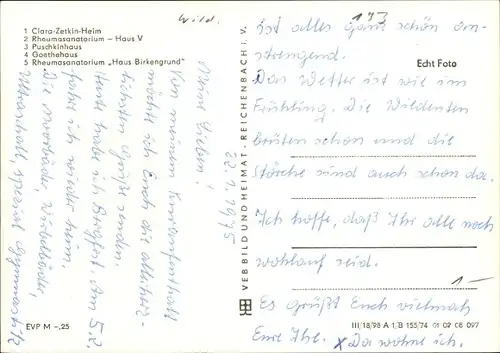 1 Clara-Zetkin-Heim
2 Rheumasanatorium – Haus V
3 Puschkinhaus
4 Goethehaus
5 Rheumasanatorium „Haus Birkengrund"
Wild.
193
Echt Foto
22.1.1975
Meine Lieben!
Von meinem Kuraufenthalt
möchte ich Euch die allerherz-
lichsten Grüße senden.
Heute habe ich Bergfest. Am 5.2.
fahre ich wieder heim.
Die Moorbäder, Wirbelbäder,
Ultraschall, spezial Gymnastik
ist alles ganz schön an-
strengend.
Das Wetter ist wie im
Frühling. Die Wildenten
brüten schon und die
Störche sind auch schon da.
Ich hoffe, daß Ihr alle noch
wohlauf seid.
Es grüßt Euch vielmals
Eure
x Da wohne ich.
1—
VEB BILD UND HEIMAT · REICHENBACH i. V.
EVP M –,25
III/18/98 A 1 B 155/74 01 02 08 097